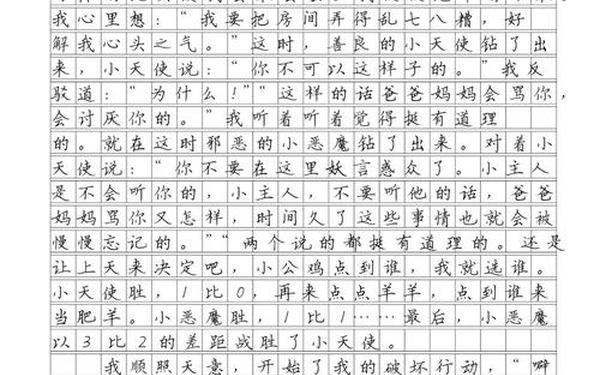 我心里想：“我要把房间弄得乱七八糟，好
解我心头之气。”这时，善良的小天使钻了出
来，小天使说：“你不可以这样子的。”我反
驳道：“为什么！”“这样的话爸爸妈妈会骂你，
会讨厌你的。”我听着听着觉得挺有道理
的。就在这时邪恶的小恶魔钻了出来。对着小
天使说：“你不要在这里妖言惑众了。小主人
是不会听你的，小主人，不要听他的话，爸爸
妈妈骂你又怎样，时间久了这些事情也就会被
慢慢忘记的。”“两个说的都挺有道理的。还是
让上天来决定吧，小公鸡点到谁，我就选谁。
小天使胜，1比0，再来点点羊羊，点到谁来
当肥羊。小恶魔胜，1比1……最后，小恶魔
以3比2的差距战胜了小天使。
我顺照天意，开始了我的破坏行动，“噼